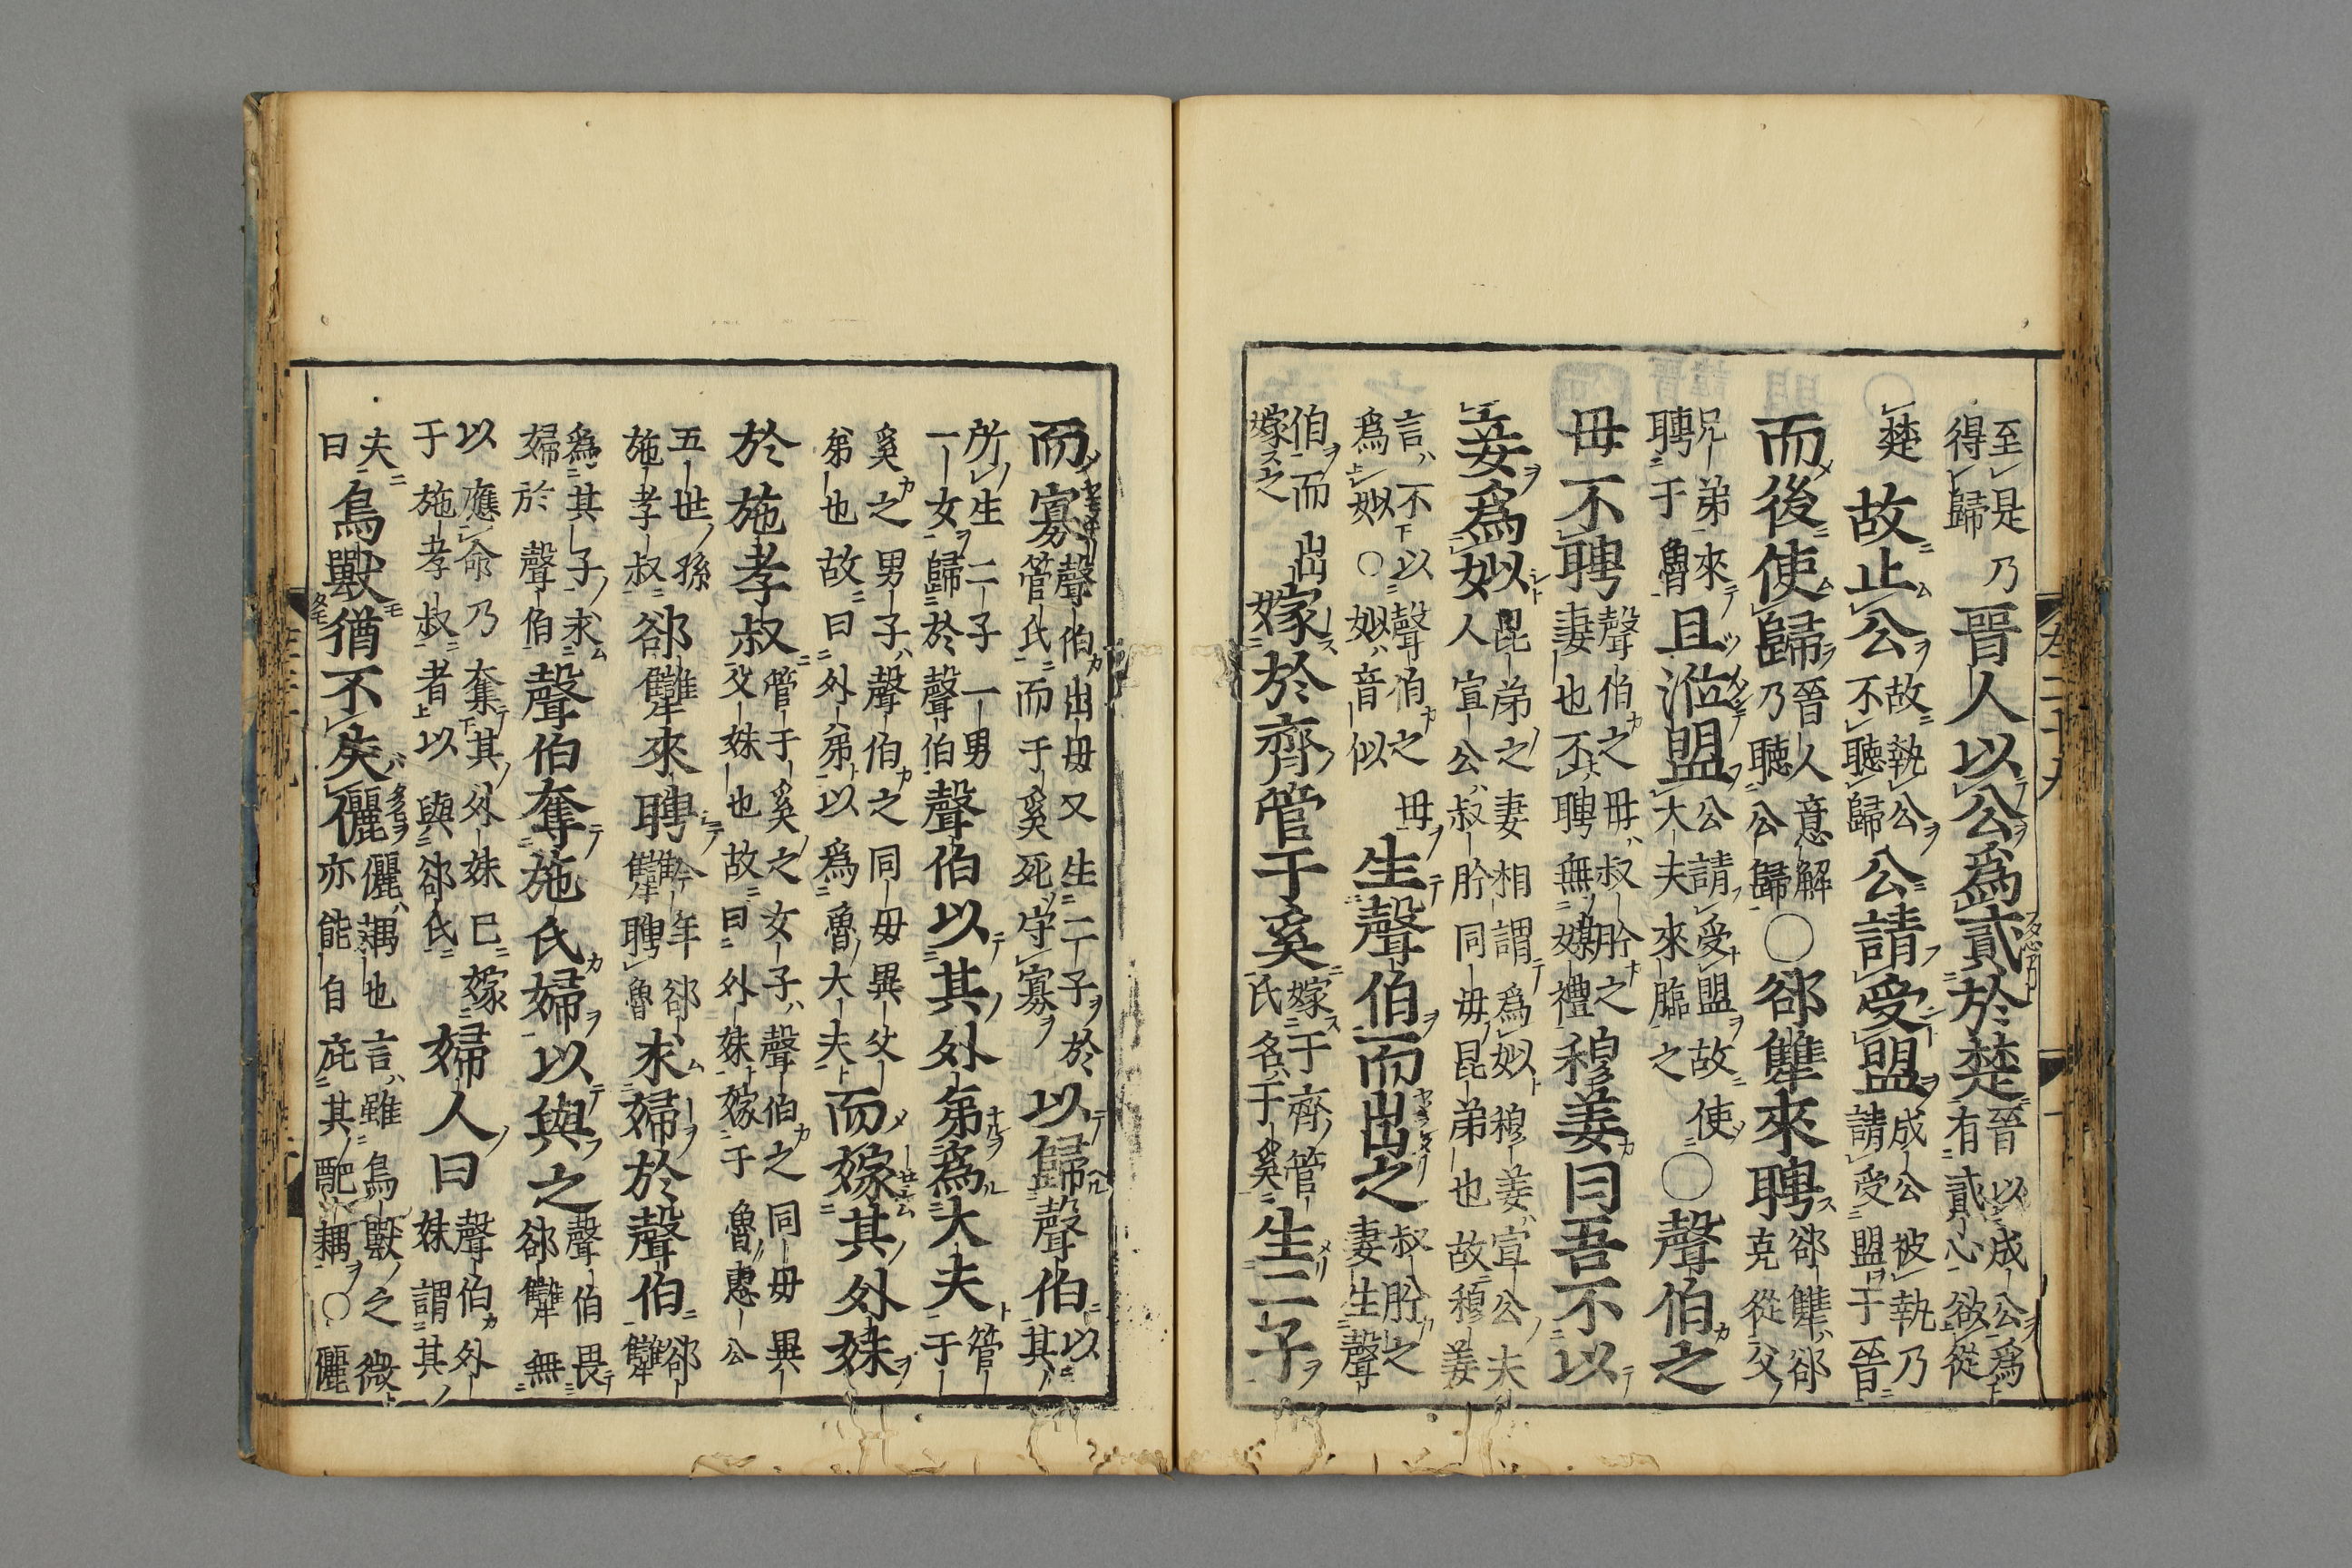 至是乃得歸晉人以公爲貳於楚晉以成公爲有貳心欲從
楚故止公故執公不聽歸公請受盟成公被執乃請受盟于晉
而後使歸晉人意解乃聽公歸〇郤犨來聘郤犨郤克從父
兄弟來聘于魯且涖盟公請受盟故使大夫來臨之〇聲伯之
毋不聘聲伯之毋叔肸之妻也不聘無媒禮穆姜曰吾不以
妾爲姒昆弟之妻相謂爲姒穆姜宣公夫人宣公叔肸同毋昆弟也故穆姜
言不以聲伯之毋爲姒〇姒音似生聲伯而出之叔肸之妻生聲
伯而出嫁之嫁於齊管于奚嫁于齊管氏名于奚生二子
而寡聲伯出毋又生二子於管氏而于奚死守寡以歸聲伯以其
所生二子一男一女歸於聲伯聲伯以其外弟爲大夫管于
奚之男子聲伯之同毋異父弟也故曰外弟以爲魯大夫而嫁其外妹
於施孝叔管于奚之女子聲伯之同毋異父妹也故曰外妹嫁于魯惠公
五世孫施孝叔郤犨來聘今年郤犨聘魯求婦於聲伯郤犨
爲其子求婦於聲伯聲伯奪施氏婦以與之聲伯畏郤犨無
以應命乃奪其外妹已嫁于施孝叔者以與郤氏婦人曰聲伯外妹謂其
夫曰鳥獸猶不失儷儷耦也言雖鳥獸之微亦能自庇其配耦〇儷